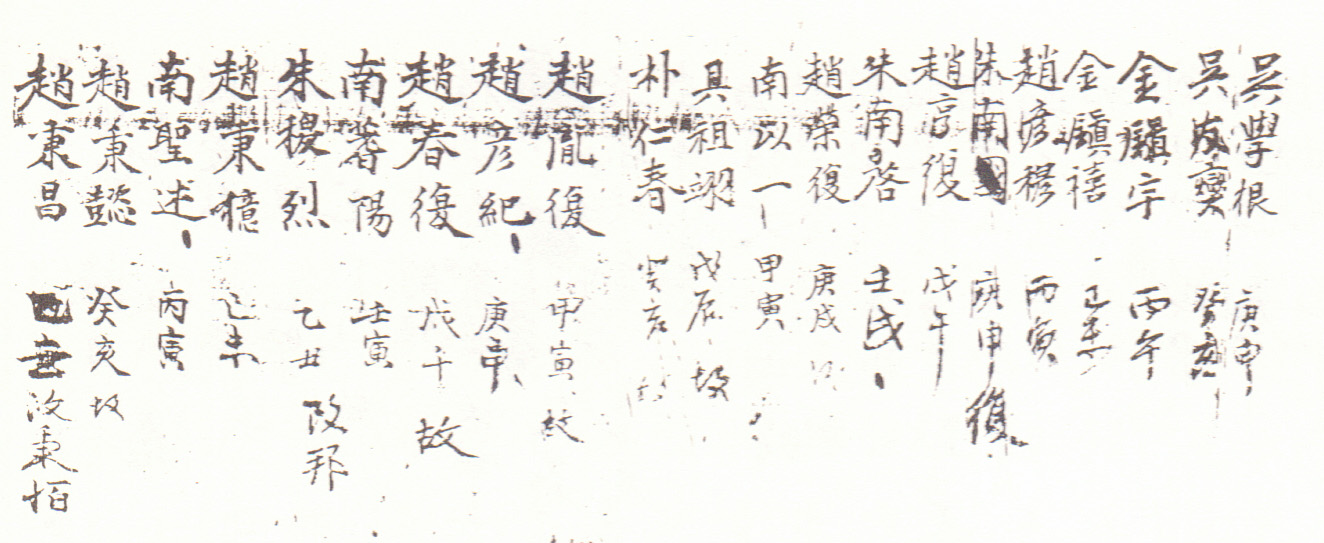 吳學根 庚申
吳 燮 癸亥
金 宇 丙午
金 禧
趙彦穆 丙寅
朱南 庚申 復
趙亨復 戊午
朱南啓 壬戌
趙榮復 庚戌
南以一 甲寅
具祖翊 戊辰 故
朴仁春 癸亥
趙胤復 甲寅 故
趙彦紀 庚申
趙春復 戊午 故
南蓍陽 壬寅
朱稷烈 乙丑 改邦
趙東檍 己未
南聖述 丙寅
趙東懿 癸亥 故
趙東昌 改東栢